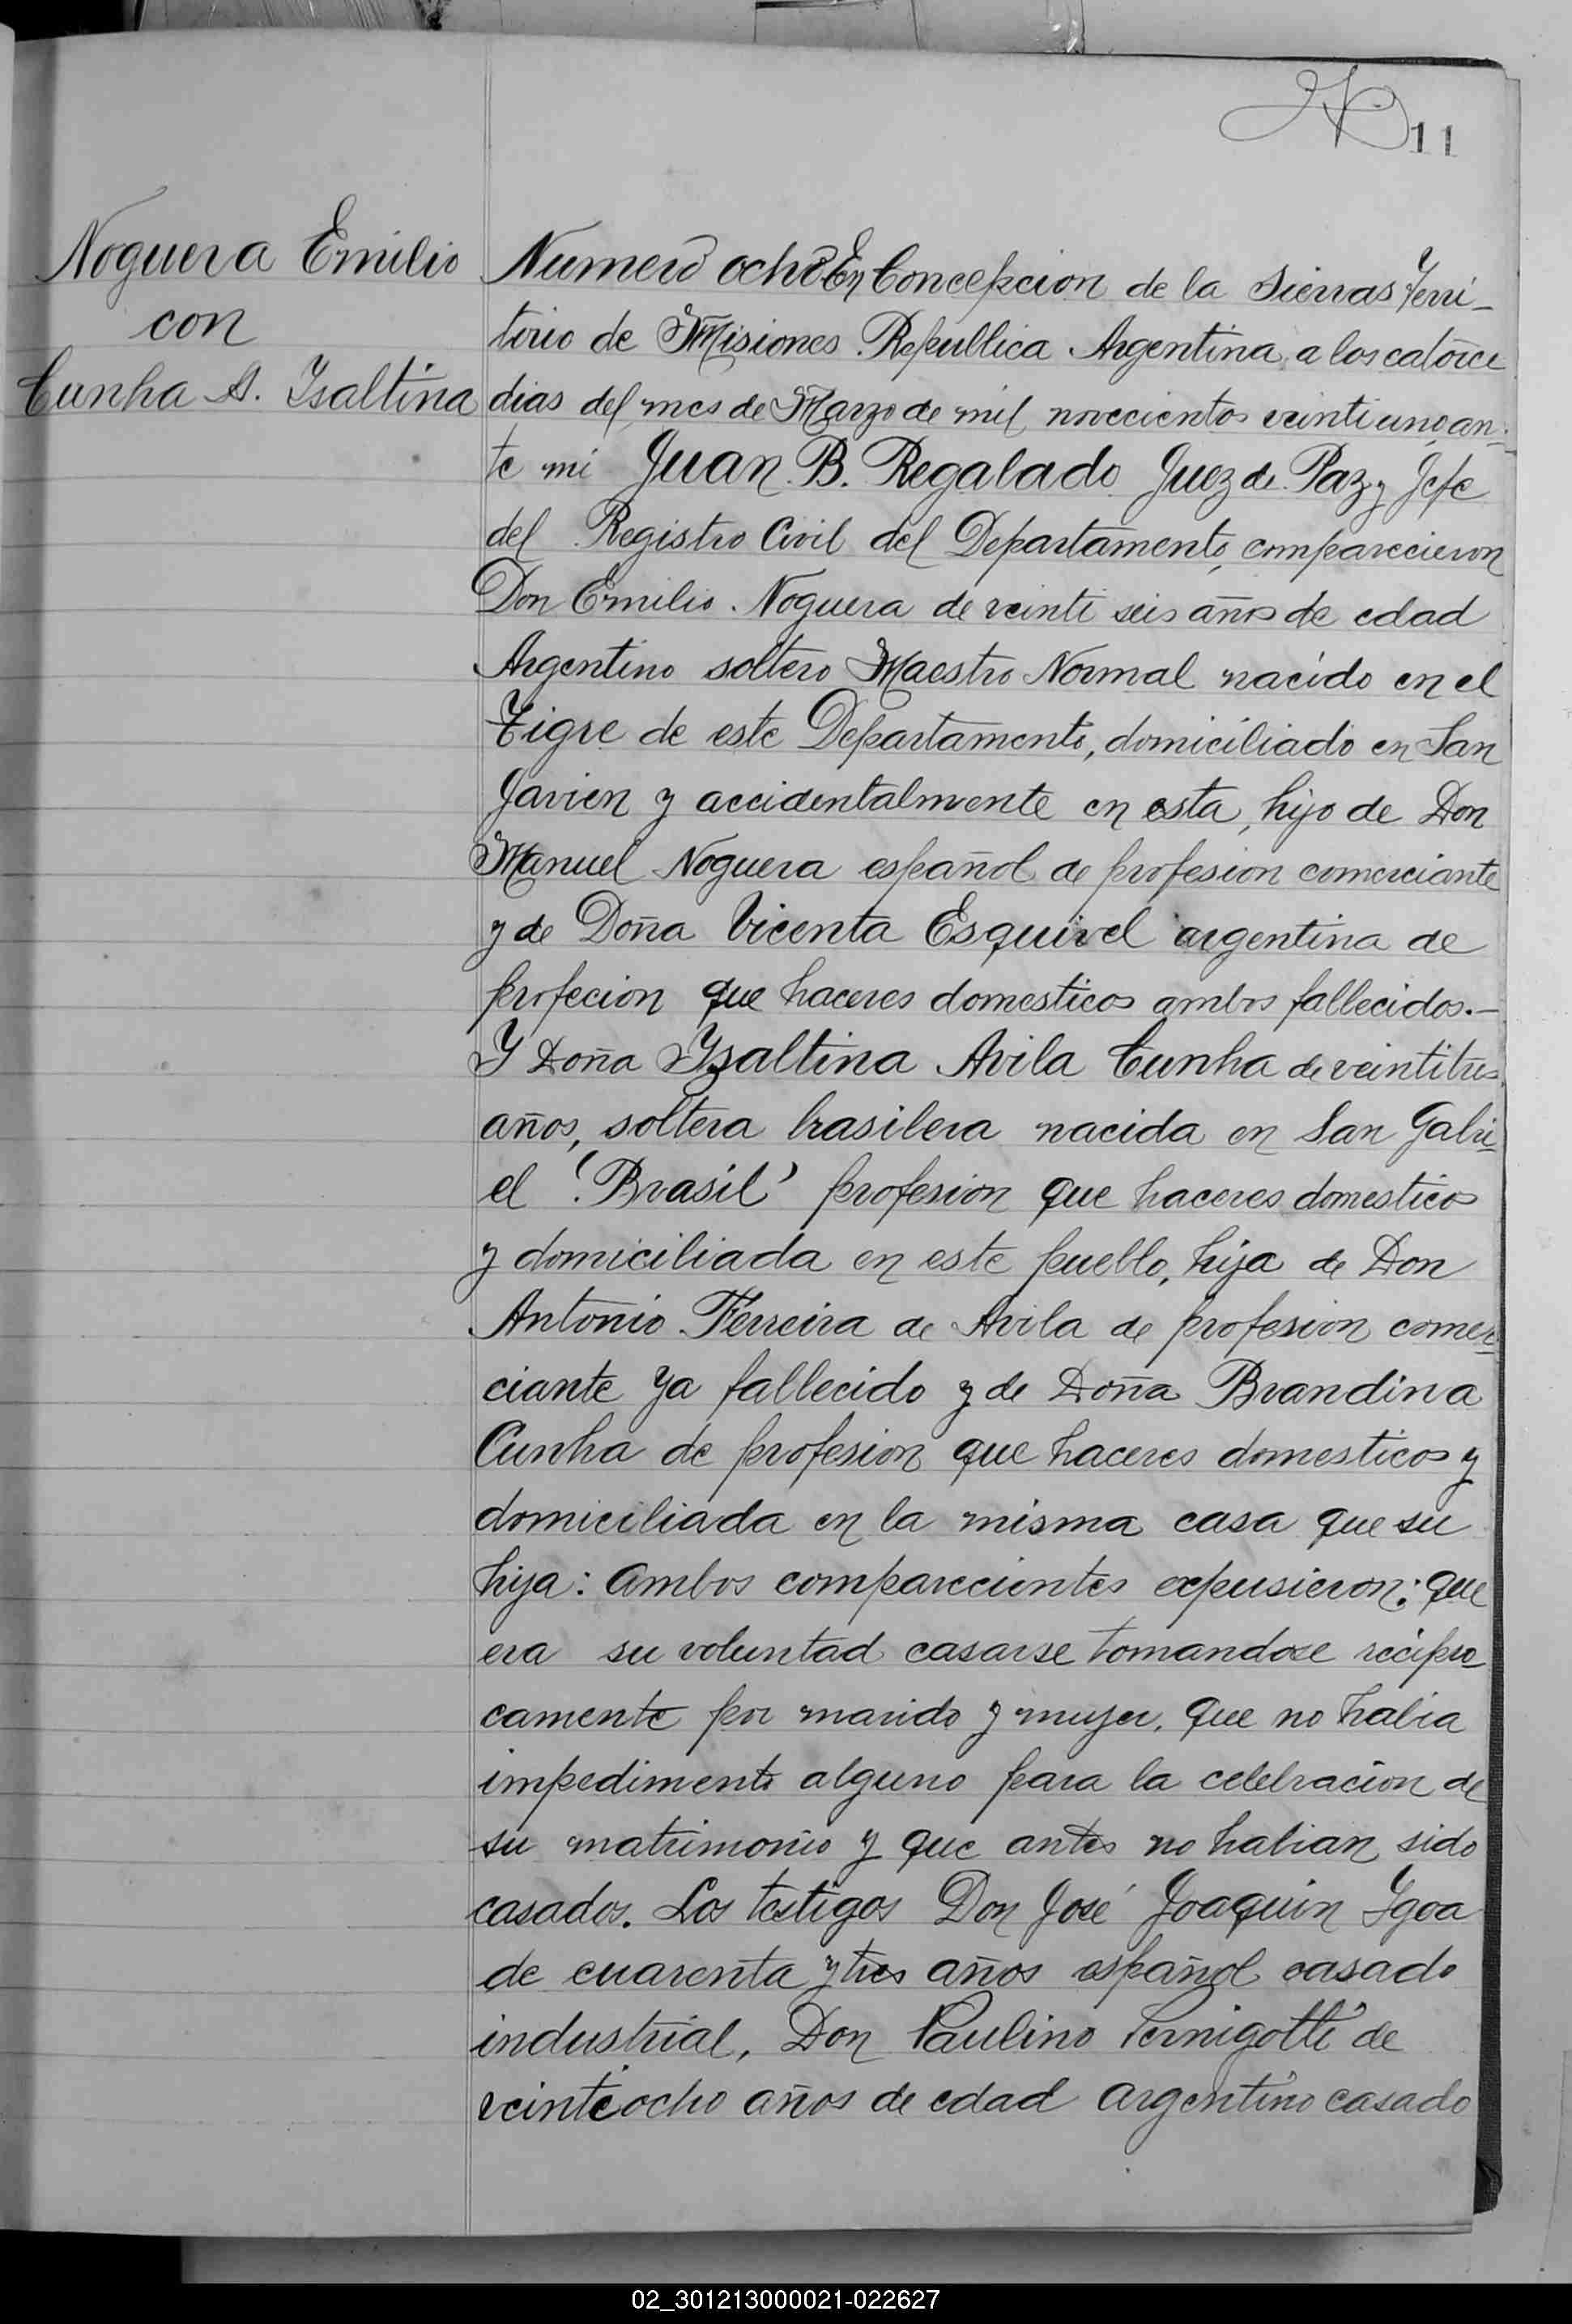 11
Noguera Emilio
con
Cunha A. Ysaltina
Numero ocho En Concepcion de la Sierras Terri-
torio de Misiones Republica Argentina a los catorce
dias del mes de Marzo de mil novecientos veintiuno, an-
te mi Juan B. Regalado Juez de Paz y Jefe
del Registro Civil del Departamento, comparecieron
Don Emilio Noguera de veinti seis años de edad
Argentino soltero Maestro Normal nacido en el
Tigre de este Departamento, domiciliado en San
Javier y accidentalmente en esta, hijo de Don
Manuel Noguera español de profesion comerciante
y de Doña Vicenta Esquivel argentina de
profecion que haceres domesticos ambos fallecidos.-
Y Doña Ysaltina Avila Cunha de veintitres
años, soltera brasilera nacida en San Gabri-
el (Brasil) profesion que haceres domesticos
y domiciliada en este pueblo, hija de Don
Antonio Ferreira de Avila de profesion comer-
ciante ya fallecido y de Doña Brandina
Cunha de profesion que haceres domesticos y
domiciliada en la misma casa que su
hija: Ambos comparecientes expusieron: que
era su voluntad casarse tomandose recipro-
camente por marido y mujer, que no habia
impedimento alguno para la celebracion de
su matrimonio y que antes no habian sido
casados. Los testigos Don José Joaquin Ygoa
de cuarenta y tres años español casado
industrial, Don Paulino Pernigotti de
veinteocho años de edad argentino casado
02_301213000021-022627